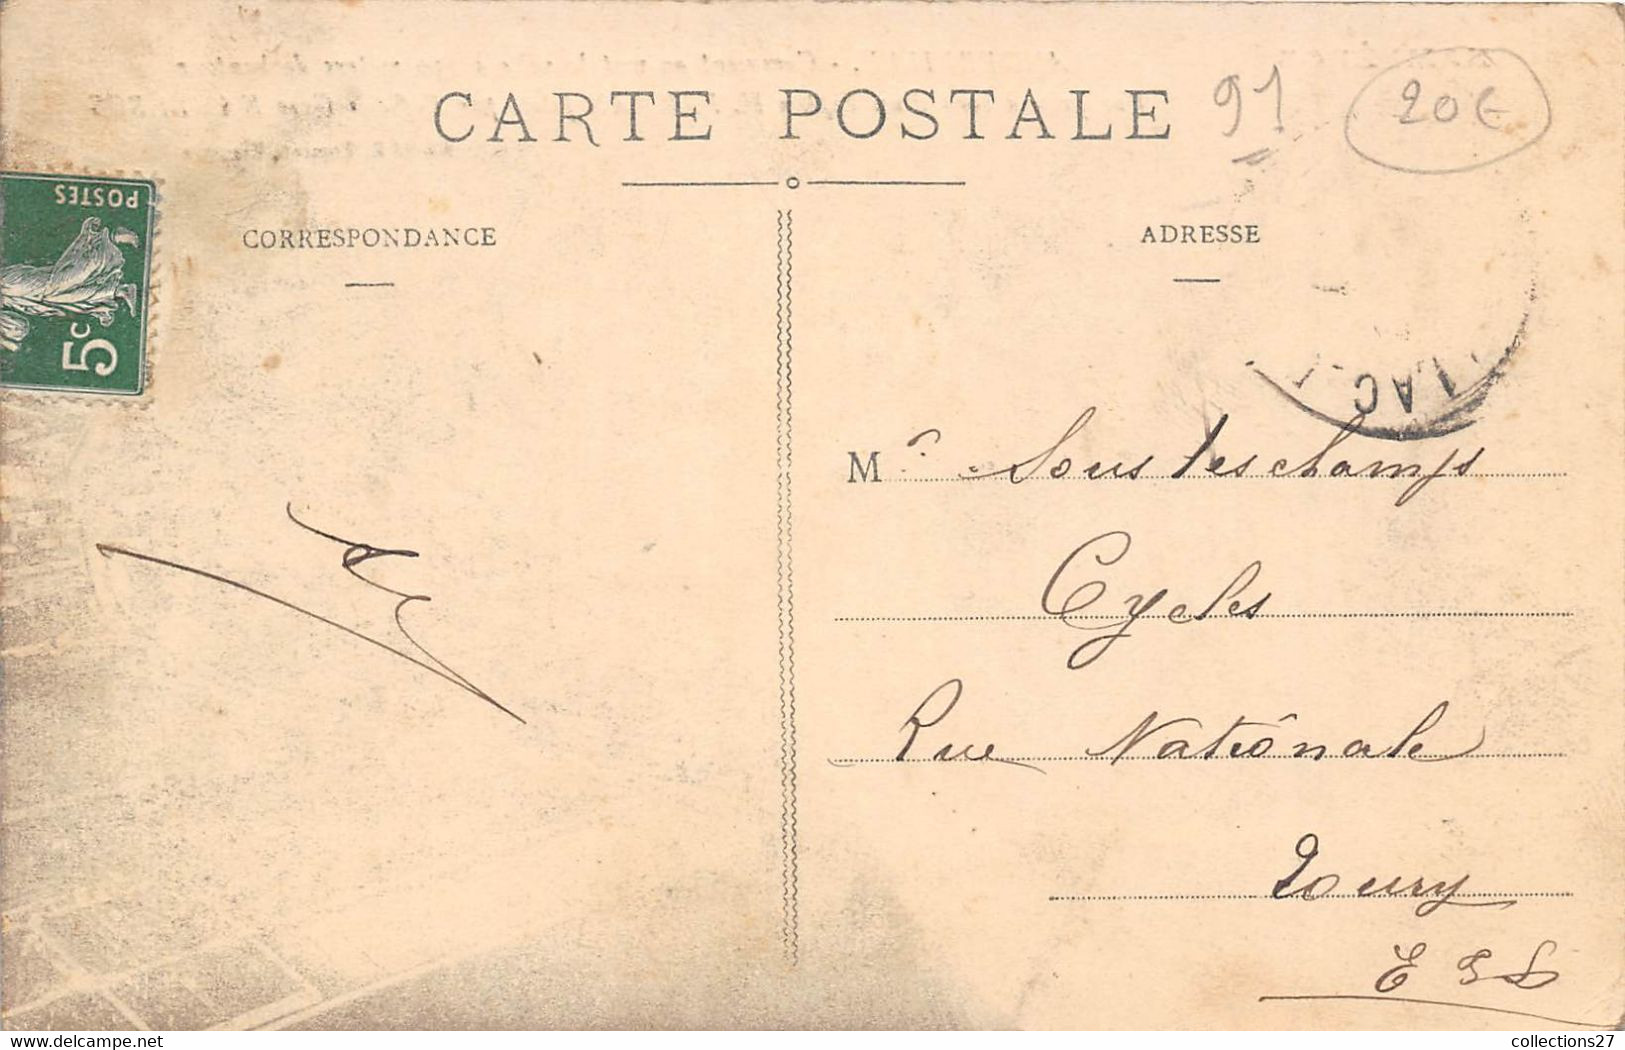 CARTE POSTALE
91
20€
POSTES
5c
CORRESPONDANCE
ADRESSE
LAC
M r Sousleschamps
Cycles
Rue Nationale
Toury
E & L
collections27